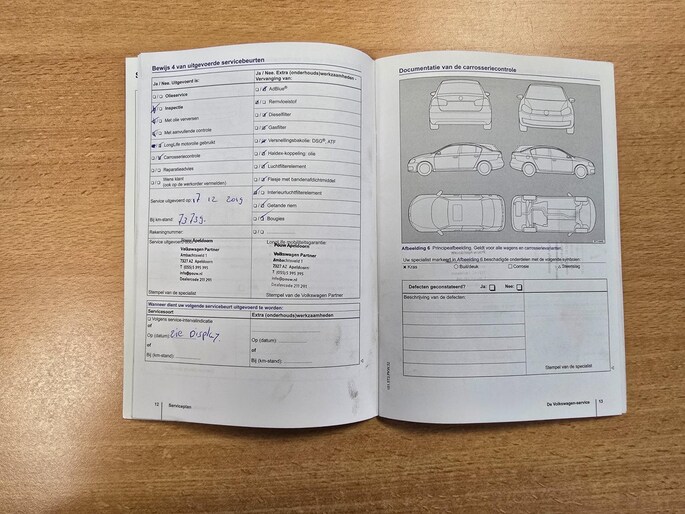 Bewijs 4 van uitgevoerde servicebeurten
Ja / Nee, Uitgevoerd is:
Olieservice
Inspectie
Met olie verversen
Met aanvullende controle
LongLife motorolie gebruikt
Carrosseriecontrole
Reparatieadvies
Wens klant
(ook op de werkorder vermelden)
Service uitgevoerd op: 17 12 2019
Bij km-stand:
Rekeningnummer:
Service uitgevoerd door:
Pouw Apeldoorn
Volkswagen Partner
7327 AZ Apeldoorn
info@pouw.nl
Stempel van de specialist
Ja / Nee, Extra (onderhouds)werkzaamheden -
Vervanging van:
AdBlue®
Remvloeistof
Dieselfilter
Gasfilter
Versnellingsbakolie: DSG®, ATF
Haldex-koppeling: olie
Luchtfilterelement
Flesje met bandenafdichtmiddel
Interieurluchtfilterelement
Getande riem
Bougies
LongLife mobiliteitsgarantie
Pouw Apeldoorn
Volkswagen Partner
7327 AZ Apeldoorn
info@pouw.nl
Stempel van de Volkswagen Partner
Wanneer dient uw volgende servicebeurt uitgevoerd te worden:
Servicesoort
Volgens service-intervalindicatie
of
Op (datum): zie DISPLAY
of
Bij (km-stand):
Extra (onderhouds)werkzaamheden
Op (datum):
of
Bij (km-stand):
12
Serviceplan
Documentatie van de carrosseriecontrole
Afbeelding 6 Principeafbeelding. Geldt voor alle wagens en carrosserievarianten.
Uw specialist markeert in Afbeelding 6 beschadigde onderdelen met de volgende symbolen:
X Kras
Buil/deuk
Corrosie
Steenslag
Defecten geconstateerd? Ja: Nee:
Beschrijving van de defecten:
Stempel van de specialist
De Volkswagen-service
13